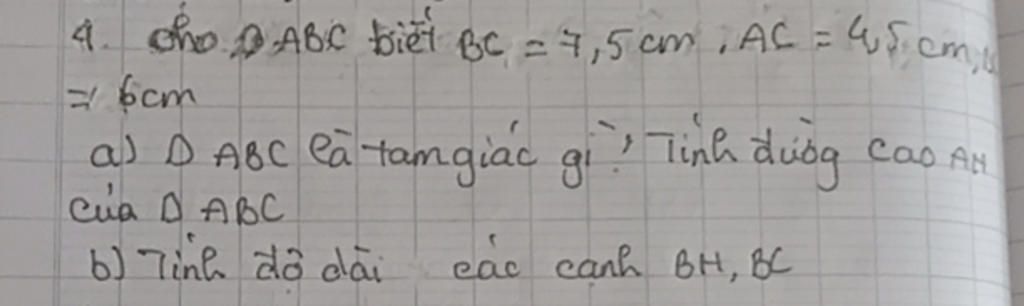 4. Cho Δ ABC biết BC = 7,5 cm, AC = 4,5 cm,
= 6cm
a) Δ ABC là tam giác gì? Tính đường cao AH
của Δ ABC
b) Tính độ dài các cạnh BH, BC